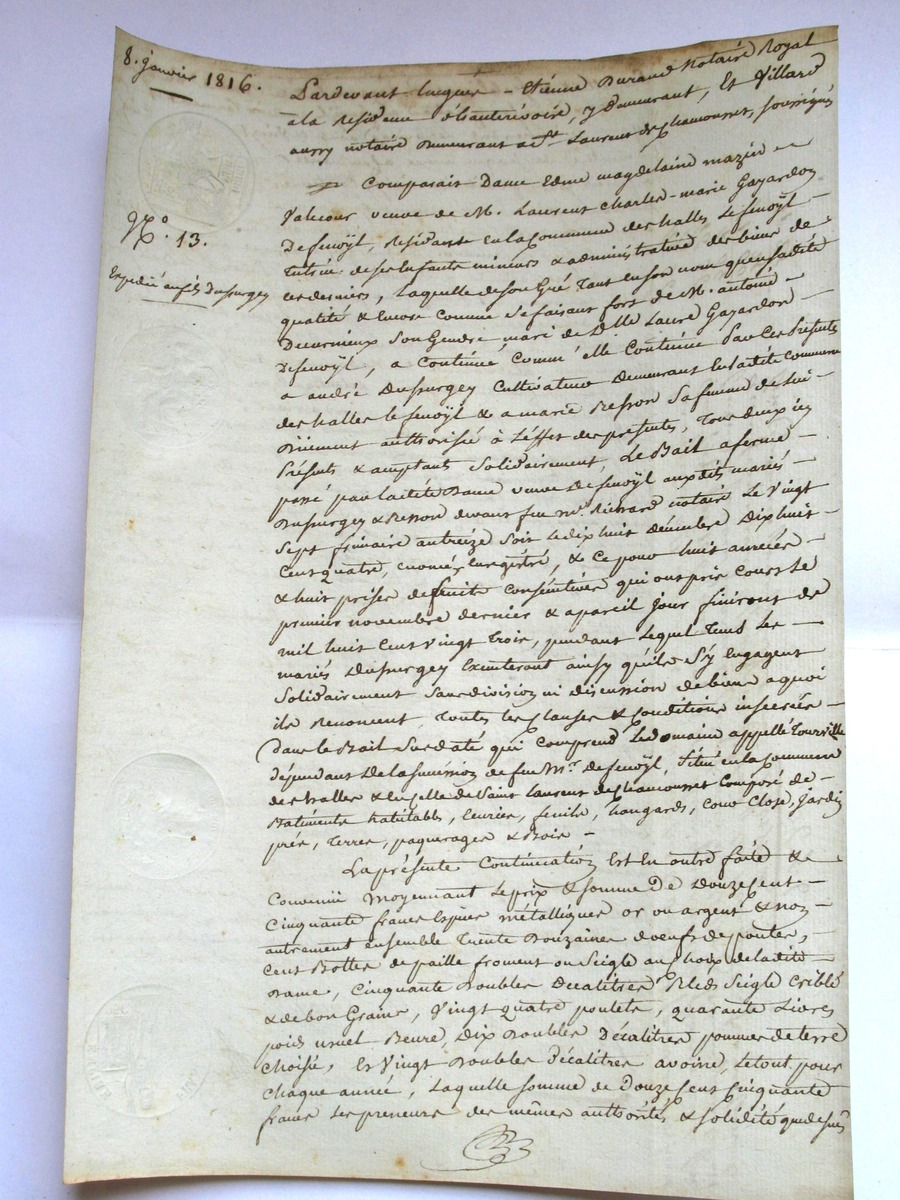 8. janvier 1816.
N.º 13.
Expedié aux dits Dussurgey
Pardevant Etienne Durand Notaire Royal
a la Residence d'hauterivoire, y demeurant, Et Villard
aussy notaire demeurant a St. Laurent de Chamousset, soussignés
Comparait Dame Edme magdelaine mazin
Valcour veuve de M. Laurent Charles-marie Gayardon
Defenoÿl, Residante en la Commune des halles Lefenoÿl
Tutrice de ses Enfants mineurs & administratrice des biens de
ces derniers, Laquelle de son Gré Tant en son nom qu'en ladite
qualité & Encore Comme se faisant fort de M. antoine
Decurnieux son Gendre mari de D.lle Laure Gayardon
Defenoÿl, a Continué Comme elle Continue Par Ces Présentes
a andré Dussurgey Cultivateur Demeurant en ladite Commune
des halles le fenoÿl & a marie Resson sa femme de lui
Dûement authorisée à L'effet des présentes, Tous deux icy
Présents & acceptants Solidairement, Le Bail a ferme
passé par ladite Dame veuve Defenoÿl aux dits mariés
Dussurgey & Resson devant feu Me. Richard notaire Le Vingt
Sept frimaire an treize soit le dix huit Décembre Dix huit
Cent quatre, Enregistré, & Ce pour huit années
& huit prises de suite Consécutives qui ont pris cours Le
premier novembre dernier & a pareil jour finiront de
mil huit Cent Vingt Trois, pendant lequel Tems Les
mariés Dussurgey Exécuteront ainsy qu'ils s'y Engagent
Solidairement sans division ni discussion de biens a quoi
ils Renoncent, Toutes les Clauses & Conditions inserées
Dans le Bail Susdaté qui Comprend Le Domaine appellé Tourville
dépendant De la succession de feu Mr. Defenoÿl, Situé en la Commune
des halles & en Celle de Saint Laurent de Chamousset Composé de
Batiments habitables, Ecuries, fenils, hangards, Cour Close, jardin
prés, Terres, paquerages & Bois
La présente Continuation Est En outre faite &
Convenüe moyennant Le prix & somme De Douze Cent
Cinquante francs Espèces métalliques or ou argent & non
autrement ensemble Trente Douzaines d'oeufs de poules,
Cent Bottes de paille froment ou Seigle au Choix de ladite
Dame, Cinquante Doubles Décalitres Bled Seigle Criblé
& de bon Grains, Vingt quatre poulets, quarante Livres
poids usuel Beure, Dix Doubles Décalitres pommes de terre
Choisie, Et Vingt Doubles Décalitres avoine, Le tout pour
Chaque année, Laquelle somme de Douze Cent Cinquante
francs Les preneurs des mêmes authorités & solidité que dessus